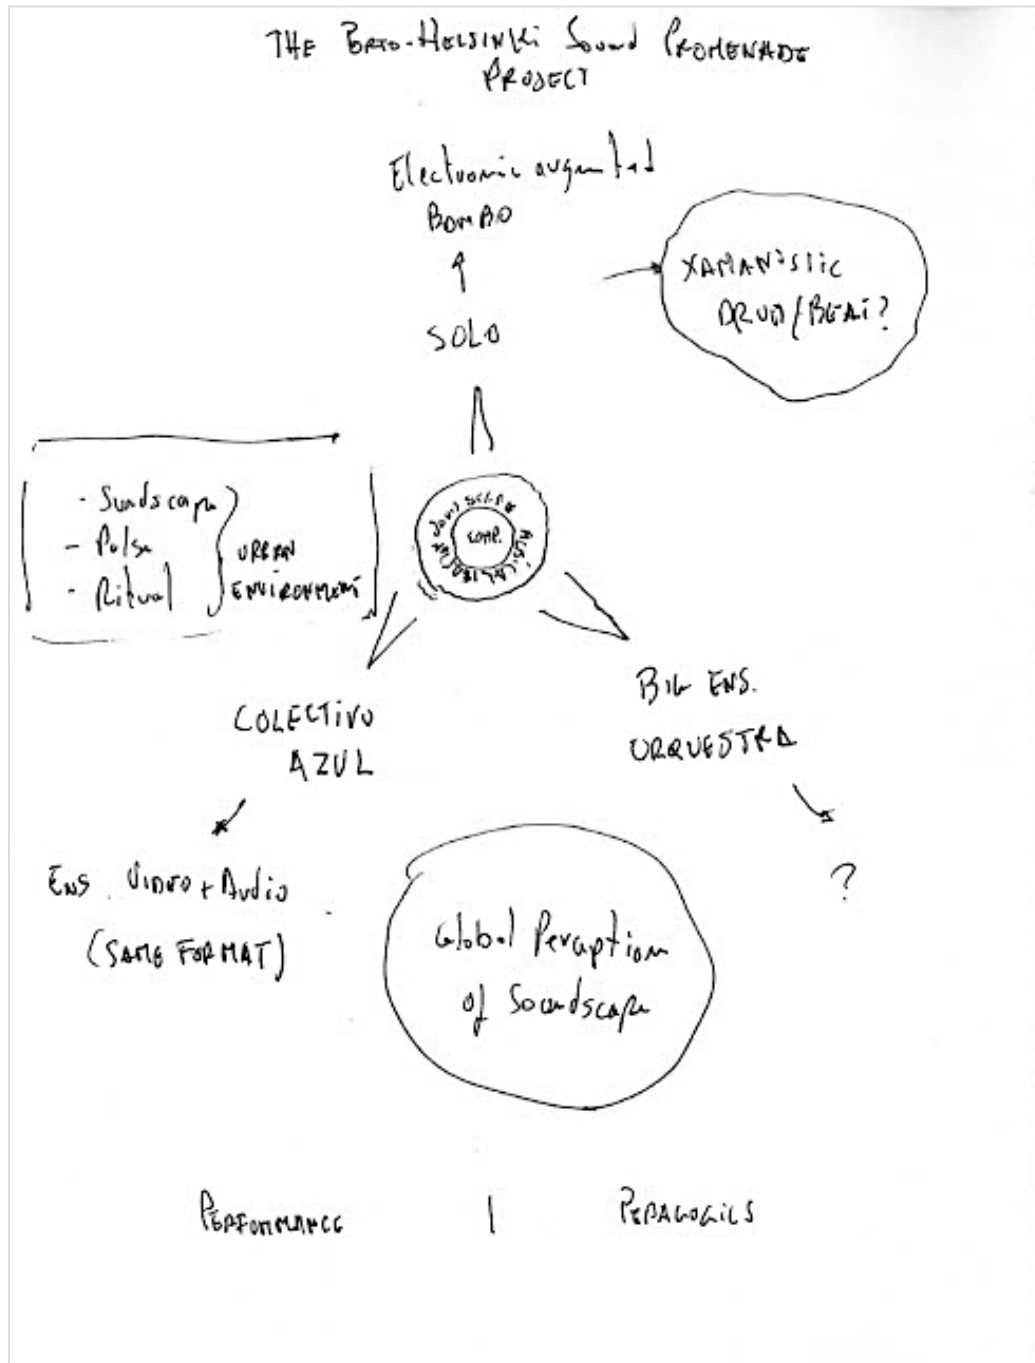 THE PORTO-HELSINKI Sound PROMENADE
PROJECT
Electronic augmented
BOMBO
SOLO
XAMANISTIC
DRUM/BEAT?
- Soundscape
- Pulse
- Ritual
URBAN
ENVIRONMENT
SOUNDSCAPE
COMP.
MUSICAL
COLECTIVO
AZUL
BIG ENS.
ORQUESTRA
ENS. VIDEO + Audio
(SAME FORMAT)
?
Global Perception
of Soundscape
PERFORMANCE | PEDAGOGICS